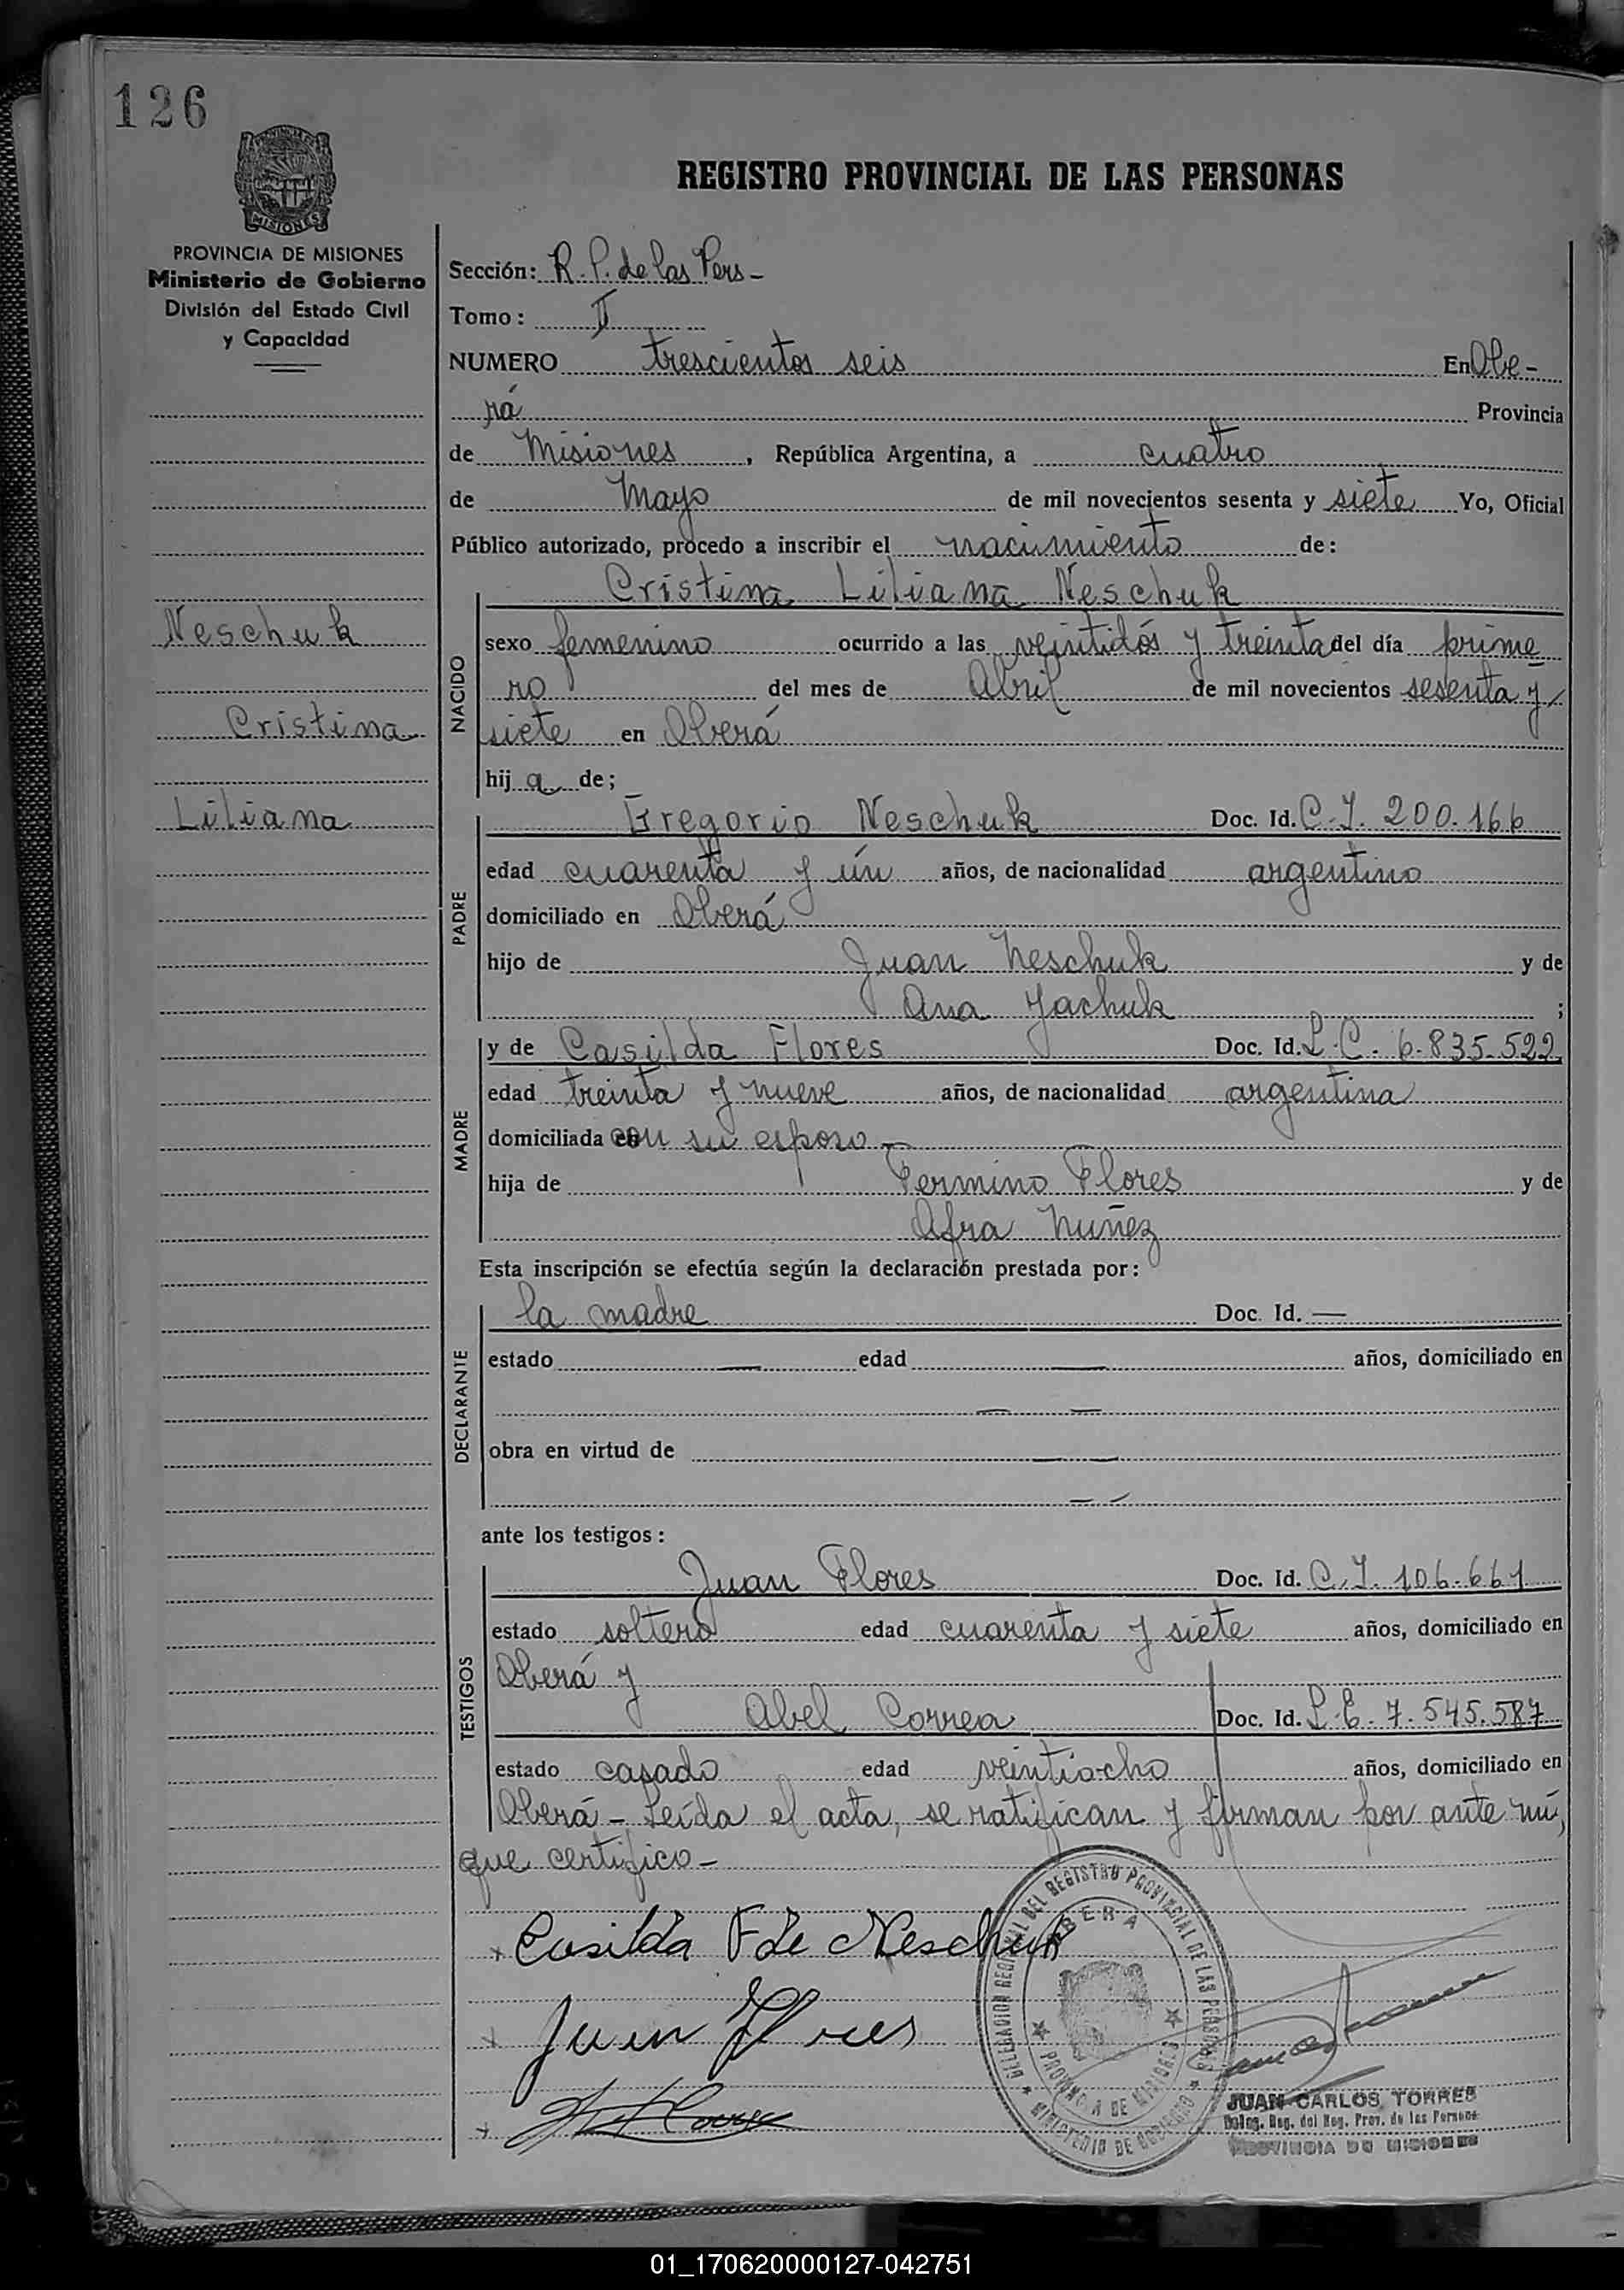 126
PROVINCIA DE
MISIONES
PROVINCIA DE MISIONES
Ministerio de Gobierno
División del Estado Civil
y Capacidad
Neschuk
Cristina
Liliana
REGISTRO PROVINCIAL DE LAS PERSONAS
Sección: R. P. de las Pers-
Tomo: II
NUMERO trescientos seis En Obe-
rá Provincia
de Misiones, República Argentina, a cuatro
de Mayo de mil novecientos sesenta y siete Yo, Oficial
Público autorizado, procedo a inscribir el nacimiento de:
NACIDO
Cristina Liliana Neschuk
sexo femenino ocurrido a las veintidós y treinta del día prime
ro del mes de Abril de mil novecientos sesenta y
siete en Oberá
hij a de;
PADRE
Gregorio Neschuk Doc. Id. C. I. 200.166
edad cuarenta y ún años, de nacionalidad argentino
domiciliado en Oberá
hijo de Juan Neschuk y de
Ana Jachuk ;
MADRE
y de Casilda Flores Doc. Id. L. C. 6.835.522
edad treinta y nueve años, de nacionalidad argentina
domiciliada con su esposo -
hija de Fermino Flores y de
Afra Nuñez
Esta inscripción se efectúa según la declaración prestada por:
DECLARANTE
la madre Doc. Id. —
estado — edad — años, domiciliado en
— —
obra en virtud de — —
— —
ante los testigos:
TESTIGOS
Juan Flores Doc. Id. C. I. 106.661
estado soltero edad cuarenta y siete años, domiciliado en
Oberá y
Abel Correa Doc. Id. L. E. 7.545.587
estado casado edad veintiocho años, domiciliado en
Oberá - Leída el acta, se ratifican y firman por ante mí,
que certifico -
+ Casilda F de Neschuk
+ Juan Flores
+
DELEGACION REGIONAL DEL REGISTRO PROVINCIAL DE LAS PERSONAS
OBERA
PROVINCIA DE MISIONES
MINISTERIO DE GOBIERNO
JUAN CARLOS TORRES
Deleg. Reg. del Reg. Prov. de las Personas
PROVINCIA DE MISIONES
01_170620000127-042751